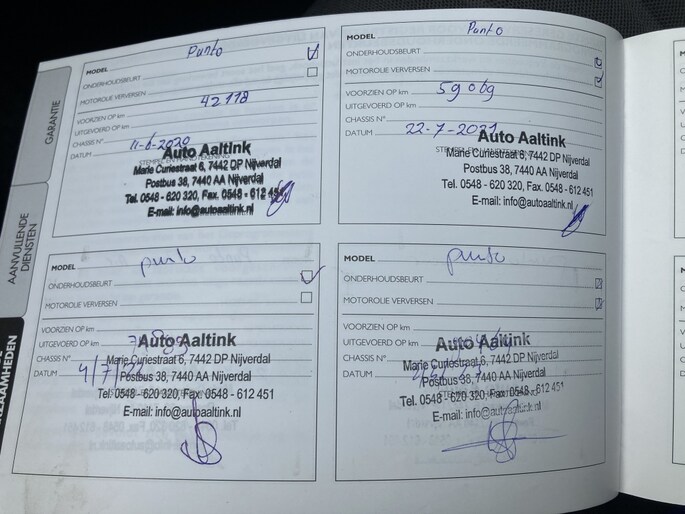 GARANTIE
AANVULLENDE
DIENSTEN
MODEL Punto
ONDERHOUDSBEURT
MOTOROLIE VERVERSEN
VOORZIEN OP km 42118
UITGEVOERD OP km
CHASSIS N°
DATUM 11-6-2020
Auto Aaltink
Marie Curiestraat 6, 7442 DP Nijverdal
Postbus 38, 7440 AA Nijverdal
Tel. 0548 - 620 320, Fax. 0548 - 612 451
E-mail: info@autoaaltink.nl
MODEL Punto
ONDERHOUDSBEURT
MOTOROLIE VERVERSEN
VOORZIEN OP km 59069
UITGEVOERD OP km
CHASSIS N°
DATUM 22-7-2021
Auto Aaltink
Marie Curiestraat 6, 7442 DP Nijverdal
Postbus 38, 7440 AA Nijverdal
Tel. 0548 - 620 320, Fax. 0548 - 612 451
E-mail: info@autoaaltink.nl
MODEL punto
ONDERHOUDSBEURT
MOTOROLIE VERVERSEN
VOORZIEN OP km
UITGEVOERD OP km
CHASSIS N°
DATUM 4/7/22
Auto Aaltink
Marie Curiestraat 6, 7442 DP Nijverdal
Postbus 38, 7440 AA Nijverdal
Tel. 0548 - 620 320, Fax. 0548 - 612 451
E-mail: info@autoaaltink.nl
MODEL punto
ONDERHOUDSBEURT
MOTOROLIE VERVERSEN
VOORZIEN OP km
UITGEVOERD OP km
CHASSIS N°
DATUM
Auto Aaltink
Marie Curiestraat 6, 7442 DP Nijverdal
Postbus 38, 7440 AA Nijverdal
Tel. 0548 - 620 320, Fax. 0548 - 612 451
E-mail: info@autoaaltink.nl